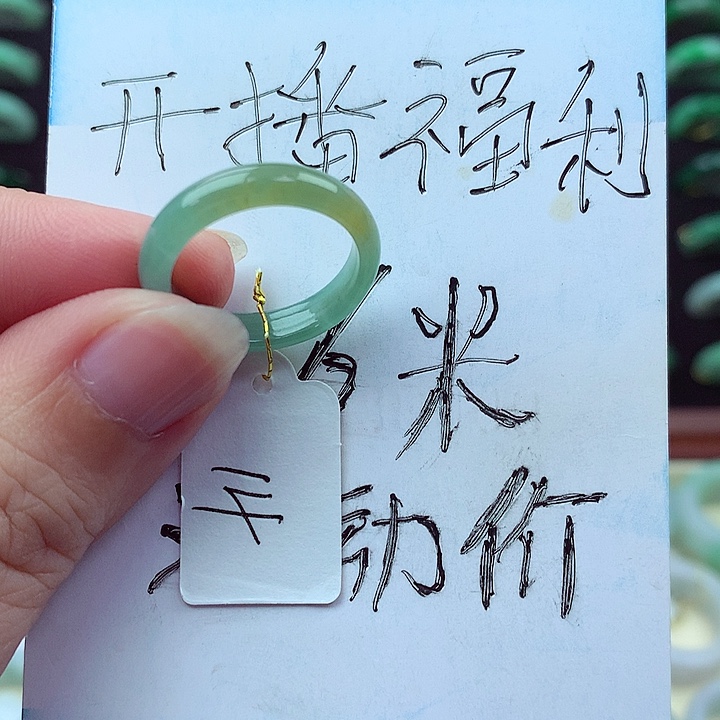 开播福利
米
动价